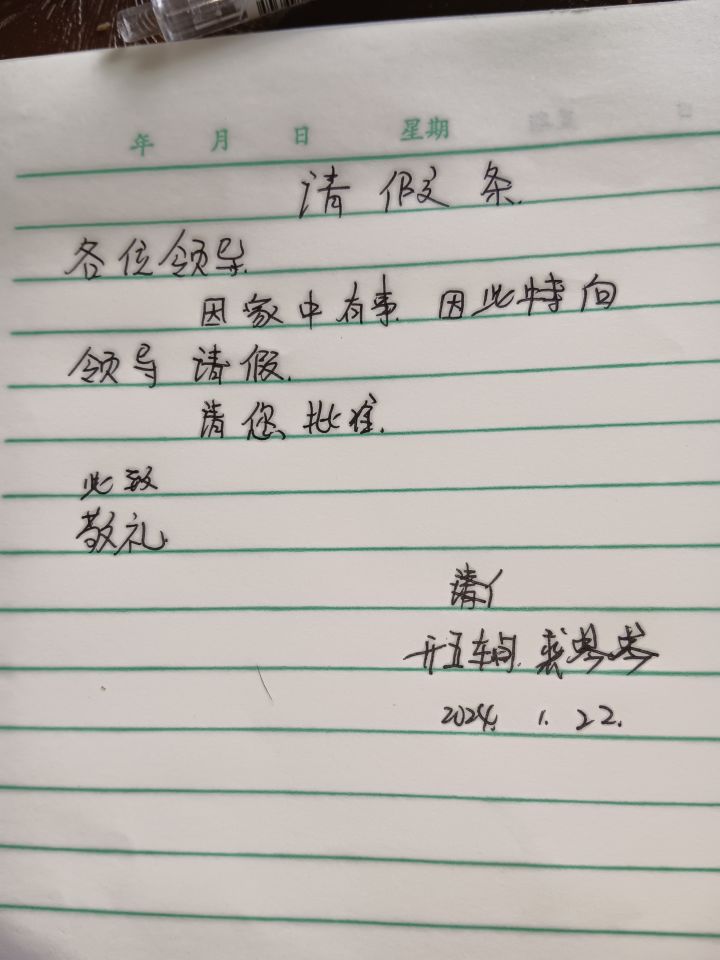 年 月 日 星期
请假条.
各位领导.
因家中有事. 因此特向
领导请假.
请您批准.
此致
敬礼.
请
五车间.
2024. 1. 22.